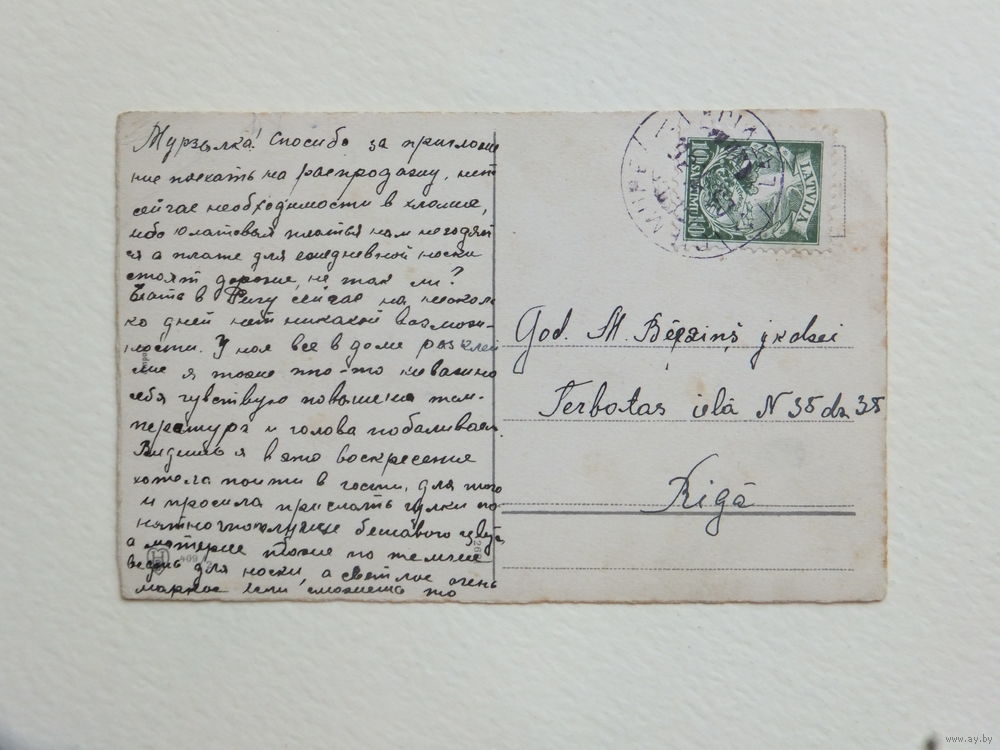 Мурзылка! Спосибо за приглоше
ние поехать на распродажу, нет
сейчас необходимости в хломие,
ибо юлатовыя платья нам негодят
ся а плате для ежедневной носки
стоят дороже, не так ли?
Ехать в Ригу сейчас на несколь
ко дней нет никакой возмож-
ности. У ноя все в доме расклеи
мне я тоже что-то неважно
себя чувствую повышена тем-
пература и голова побаливает.
Видишь я в это воскресение
хотела пойти в гости, для того
и просила прислать чулки по
нятно получше бежавого цвета
а материе тоже по темнее
ведь для носки, а светлое очень
маркое если сможешь то
LATVIJA
10 SANTIMU 10
God. M. Bērziņš jkdzei
Terbatas ielā N 35 dz 38
Rigā
H
409
www.ay.by